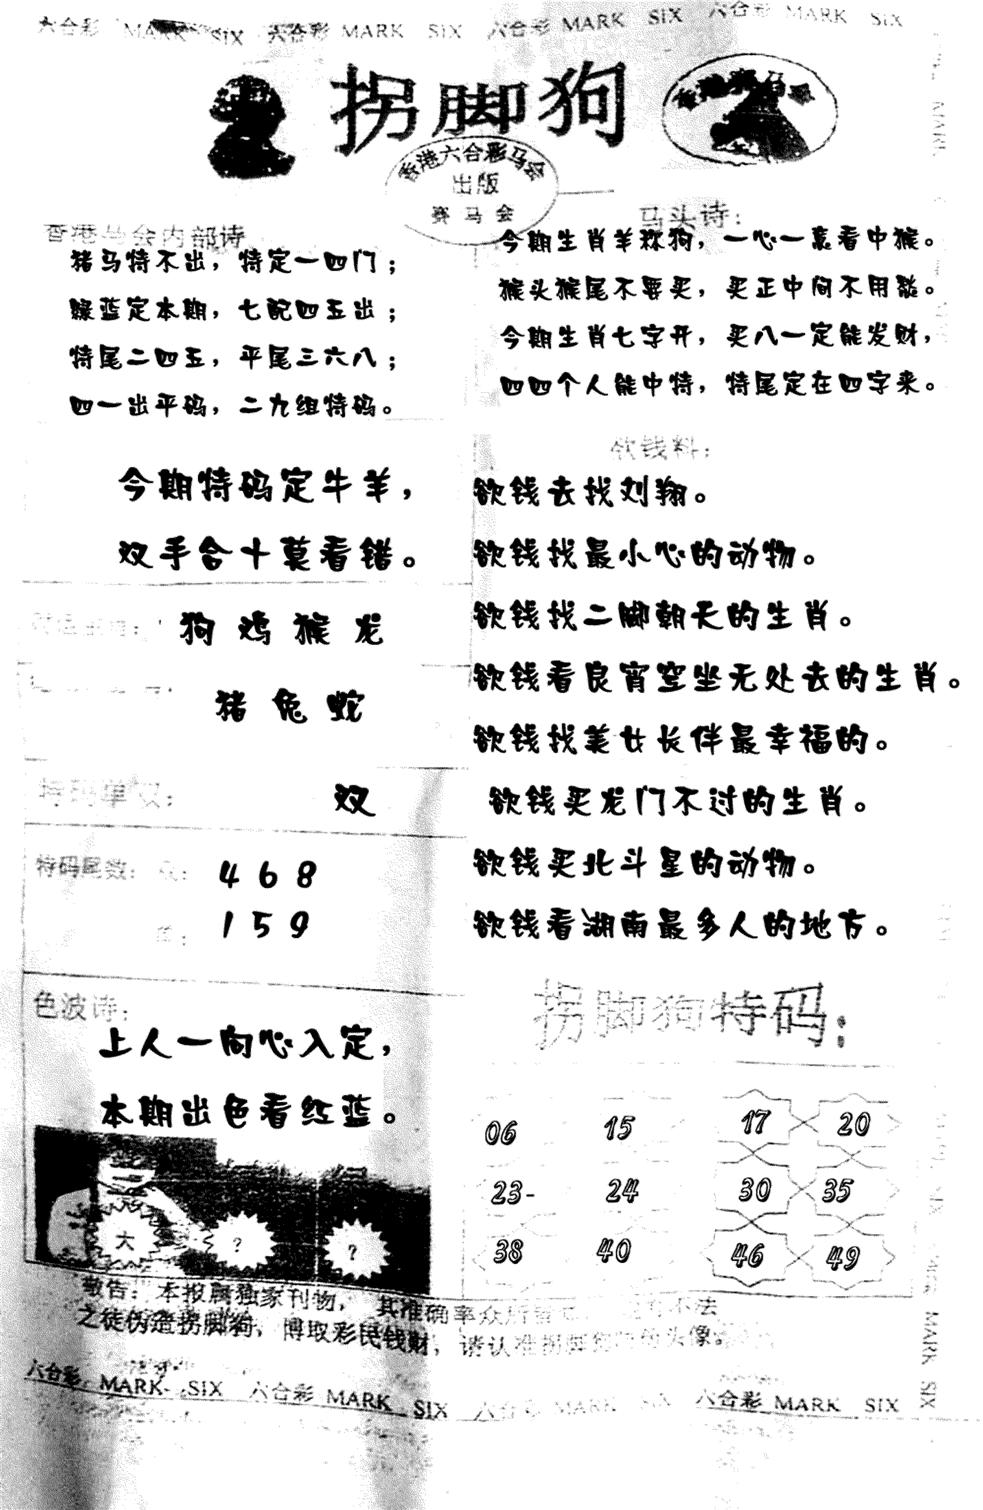 六合彩 MARK SIX 六合彩 MARK SIX 六合彩 MARK SIX 六合彩 MARK SIX
拐脚狗
香港赛马会
香港六合彩马会
出版
赛马会
香港马会内部诗
猪马特不出，特定一四门；
绿蓝定本期，七配四五出；
特尾二四五，平尾三六八；
四一出平码，二九组特码。
马头诗：
今期生肖羊称狗，一心一意看中猴。
猴头猴尾不要买，买正中间不用愁。
今期生肖七字开，买八一定能发财，
四四个人能中特，特尾定在四字来。
今期特码定牛羊，
双手合十莫看错。
狗 鸡 猴 龙
猪 兔 蛇
特码单双：
双
特码尾数：
4 6 8
1 5 9
色波诗：
上人一向心入定，
本期出色看红蓝。
大 ? ?
欲钱料：
欲钱去找刘翔。
欲钱找最小心的动物。
欲钱找二脚朝天的生肖。
欲钱看良宵空坐无处去的生肖。
欲钱找美女长伴最幸福的。
欲钱买龙门不过的生肖。
欲钱买北斗星的动物。
欲钱看湖南最多人的地方。
拐脚狗特码：
06 15 17 20
23- 24 30 35
38 40 46 49
敬告：本报属独家刊物，其准确率众所
不法
之徒伪造拐脚狗，博取彩民钱财，请认准拐脚狗 头像。
六合彩 MARK SIX 六合彩 MARK SIX 六合彩 MARK SIX 六合彩 MARK SIX
MARK SIX